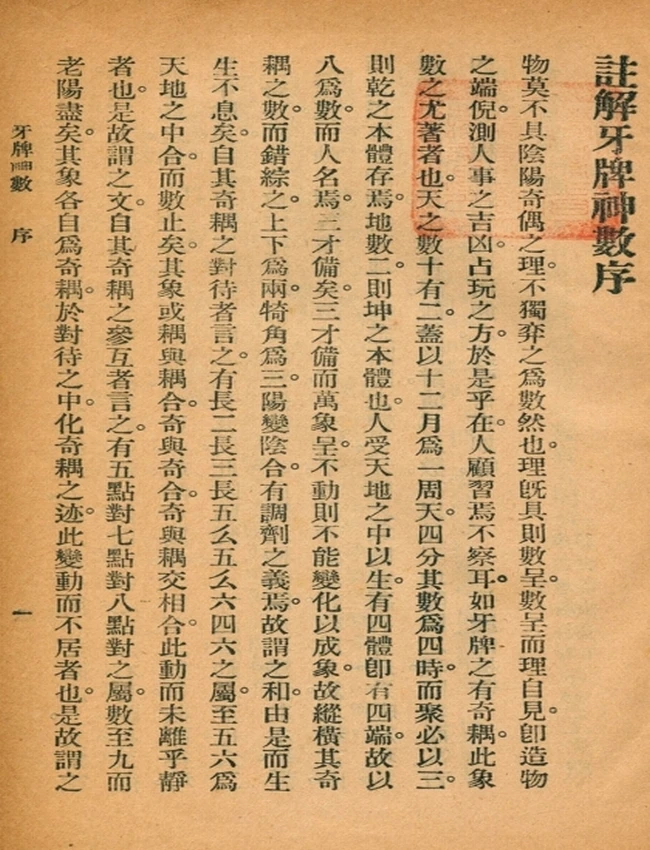 註解牙牌神數序
物莫不具陰陽奇偶之理。不獨弈之爲數然也。理旣具則數呈。數呈而理自見。卽造物
之端倪。測人事之吉凶。占玩之方。於是乎在。人顧習焉不察耳。如牙牌之有奇耦。此象
數之尤著者也。天之數十有二。蓋以十二月爲一周天。四分其數爲四時。而聚必以三。
則乾之本體存焉。地數二。則坤之本體也。人受天地之中以生。有四體卽有四端。故以
八爲數。而人名焉。三才備矣。三才備而萬象呈。不動則不能變化以成象。故縱橫其奇
耦之數。而錯綜之。上下爲兩。犄角爲三。陽變陰合。有調劑之義焉。故謂之和。由是而生
生不息矣。自其奇耦之對待者言之。有長二長三長五么五么六四六之屬。至五六爲
天地之中合。而數止矣。其象或耦與耦合。奇與奇合。奇與耦交相合。此動而未離乎靜
者也。是故謂之文。自其奇耦之參互者言之。有五點對七點對八點對之屬。數至九而
老陽盡矣。其象各自爲奇耦。於對待之中。化奇耦之迹。此變動而不居者也。是故謂之
牙牌神數 序 一